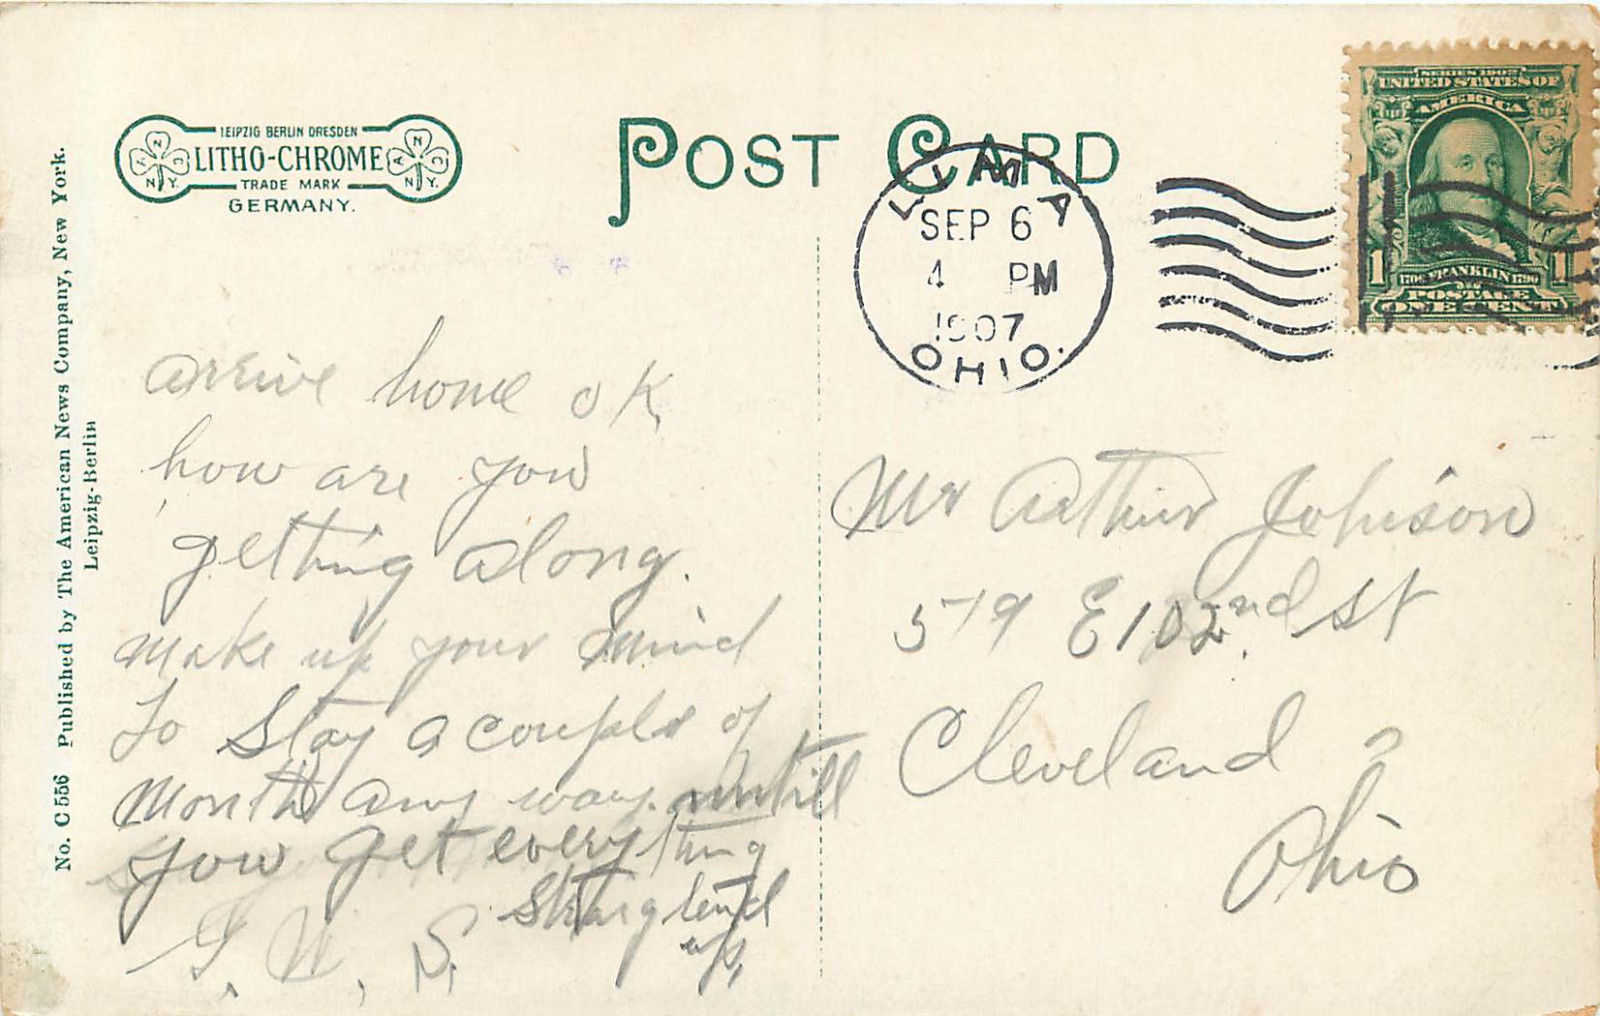 No. C 556 Published by The American News Company, New York.
Leipzig-Berlin
LEIPZIG BERLIN DRESDEN
LITHO-CHROME
TRADE MARK
GERMANY.
A N C
N.Y.
A N C
N.Y.
POST CARD
LIMA
SEP 6
4 PM
1907
OHIO.
SERIES 1902
UNITED STATES OF
AMERICA
1 1
1706 FRANKLIN 1790
POSTAGE
ONE CENT
arrive home OK,
how are you
getting along.
make up your mind
to stay a couple of
month any way. untill
you get every thing
up,
G. W. S.
Mr Arthur Johnson
519 E 102nd St
Cleveland
Ohio